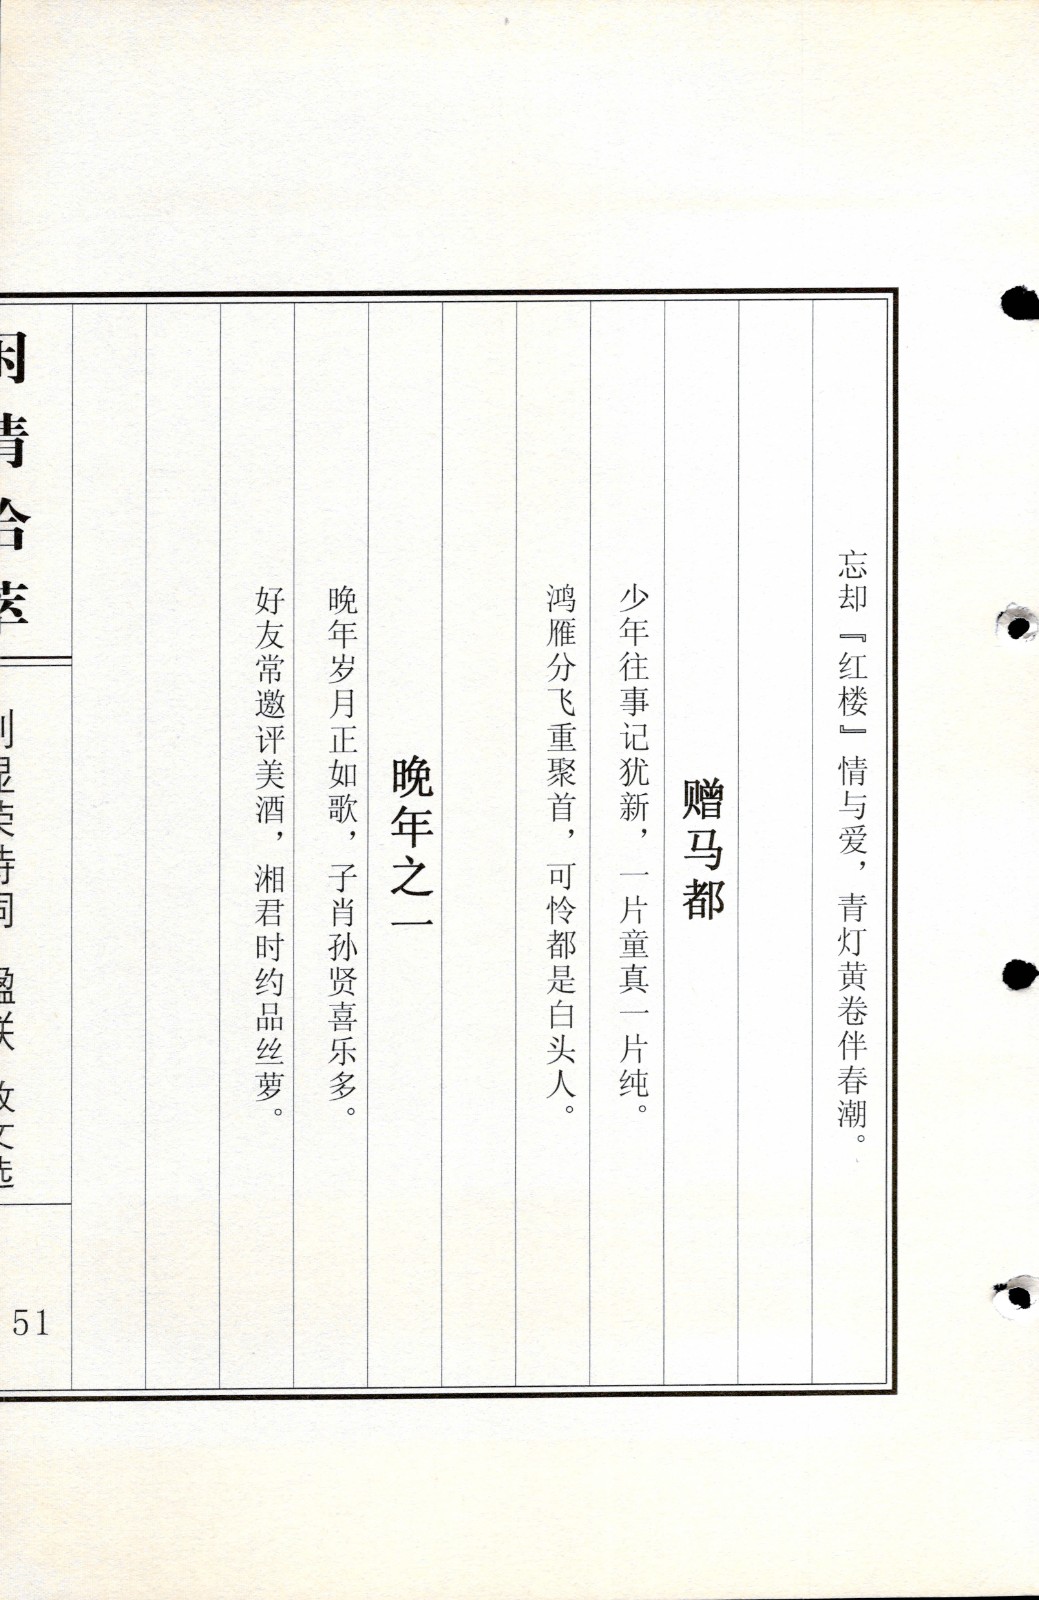 忘却『红楼』情与爱，青灯黄卷伴春潮。
赠马都
少年往事记犹新，一片童真一片纯。
鸿雁分飞重聚首，可怜都是白头人。
晚年之一
晚年岁月正如歌，子肖孙贤喜乐多。
好友常邀评美酒，湘君时约品丝萝。
闲情拾萃
显荣诗词 楹联 散文选
51